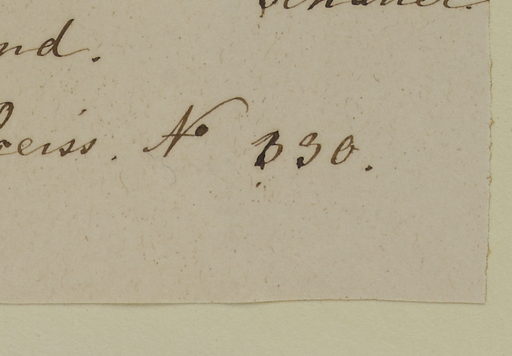 nd.
eiss. No 330.